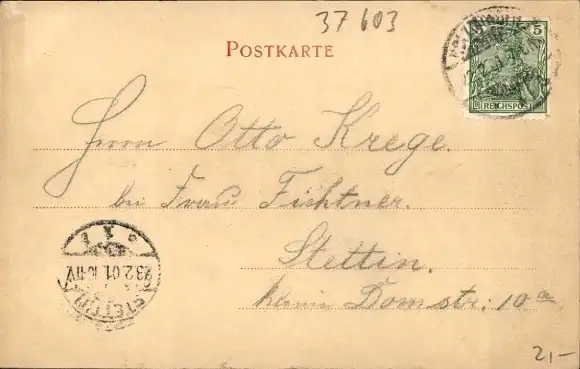 37 603
POSTKARTE
5
REICHSPOST
Herrn Otto Krege.
bei Frau Fichtner.
Stettin.
kleine Domstr: 10a
STETTIN
23.2.01.10-11V.
2,-